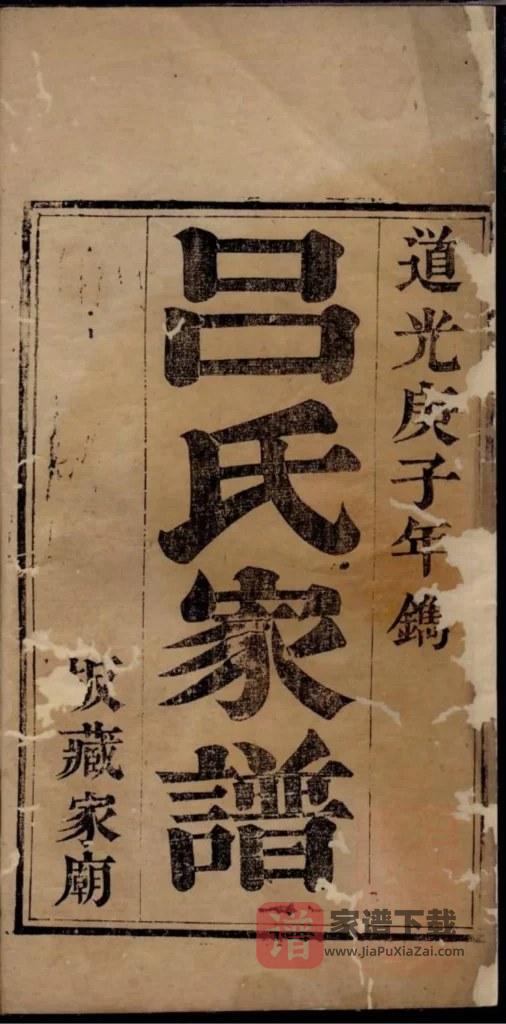 道光庚子年鐫
呂氏家譜
藏家廟
谱
家谱下载
www.JiaPuXiaZai.com